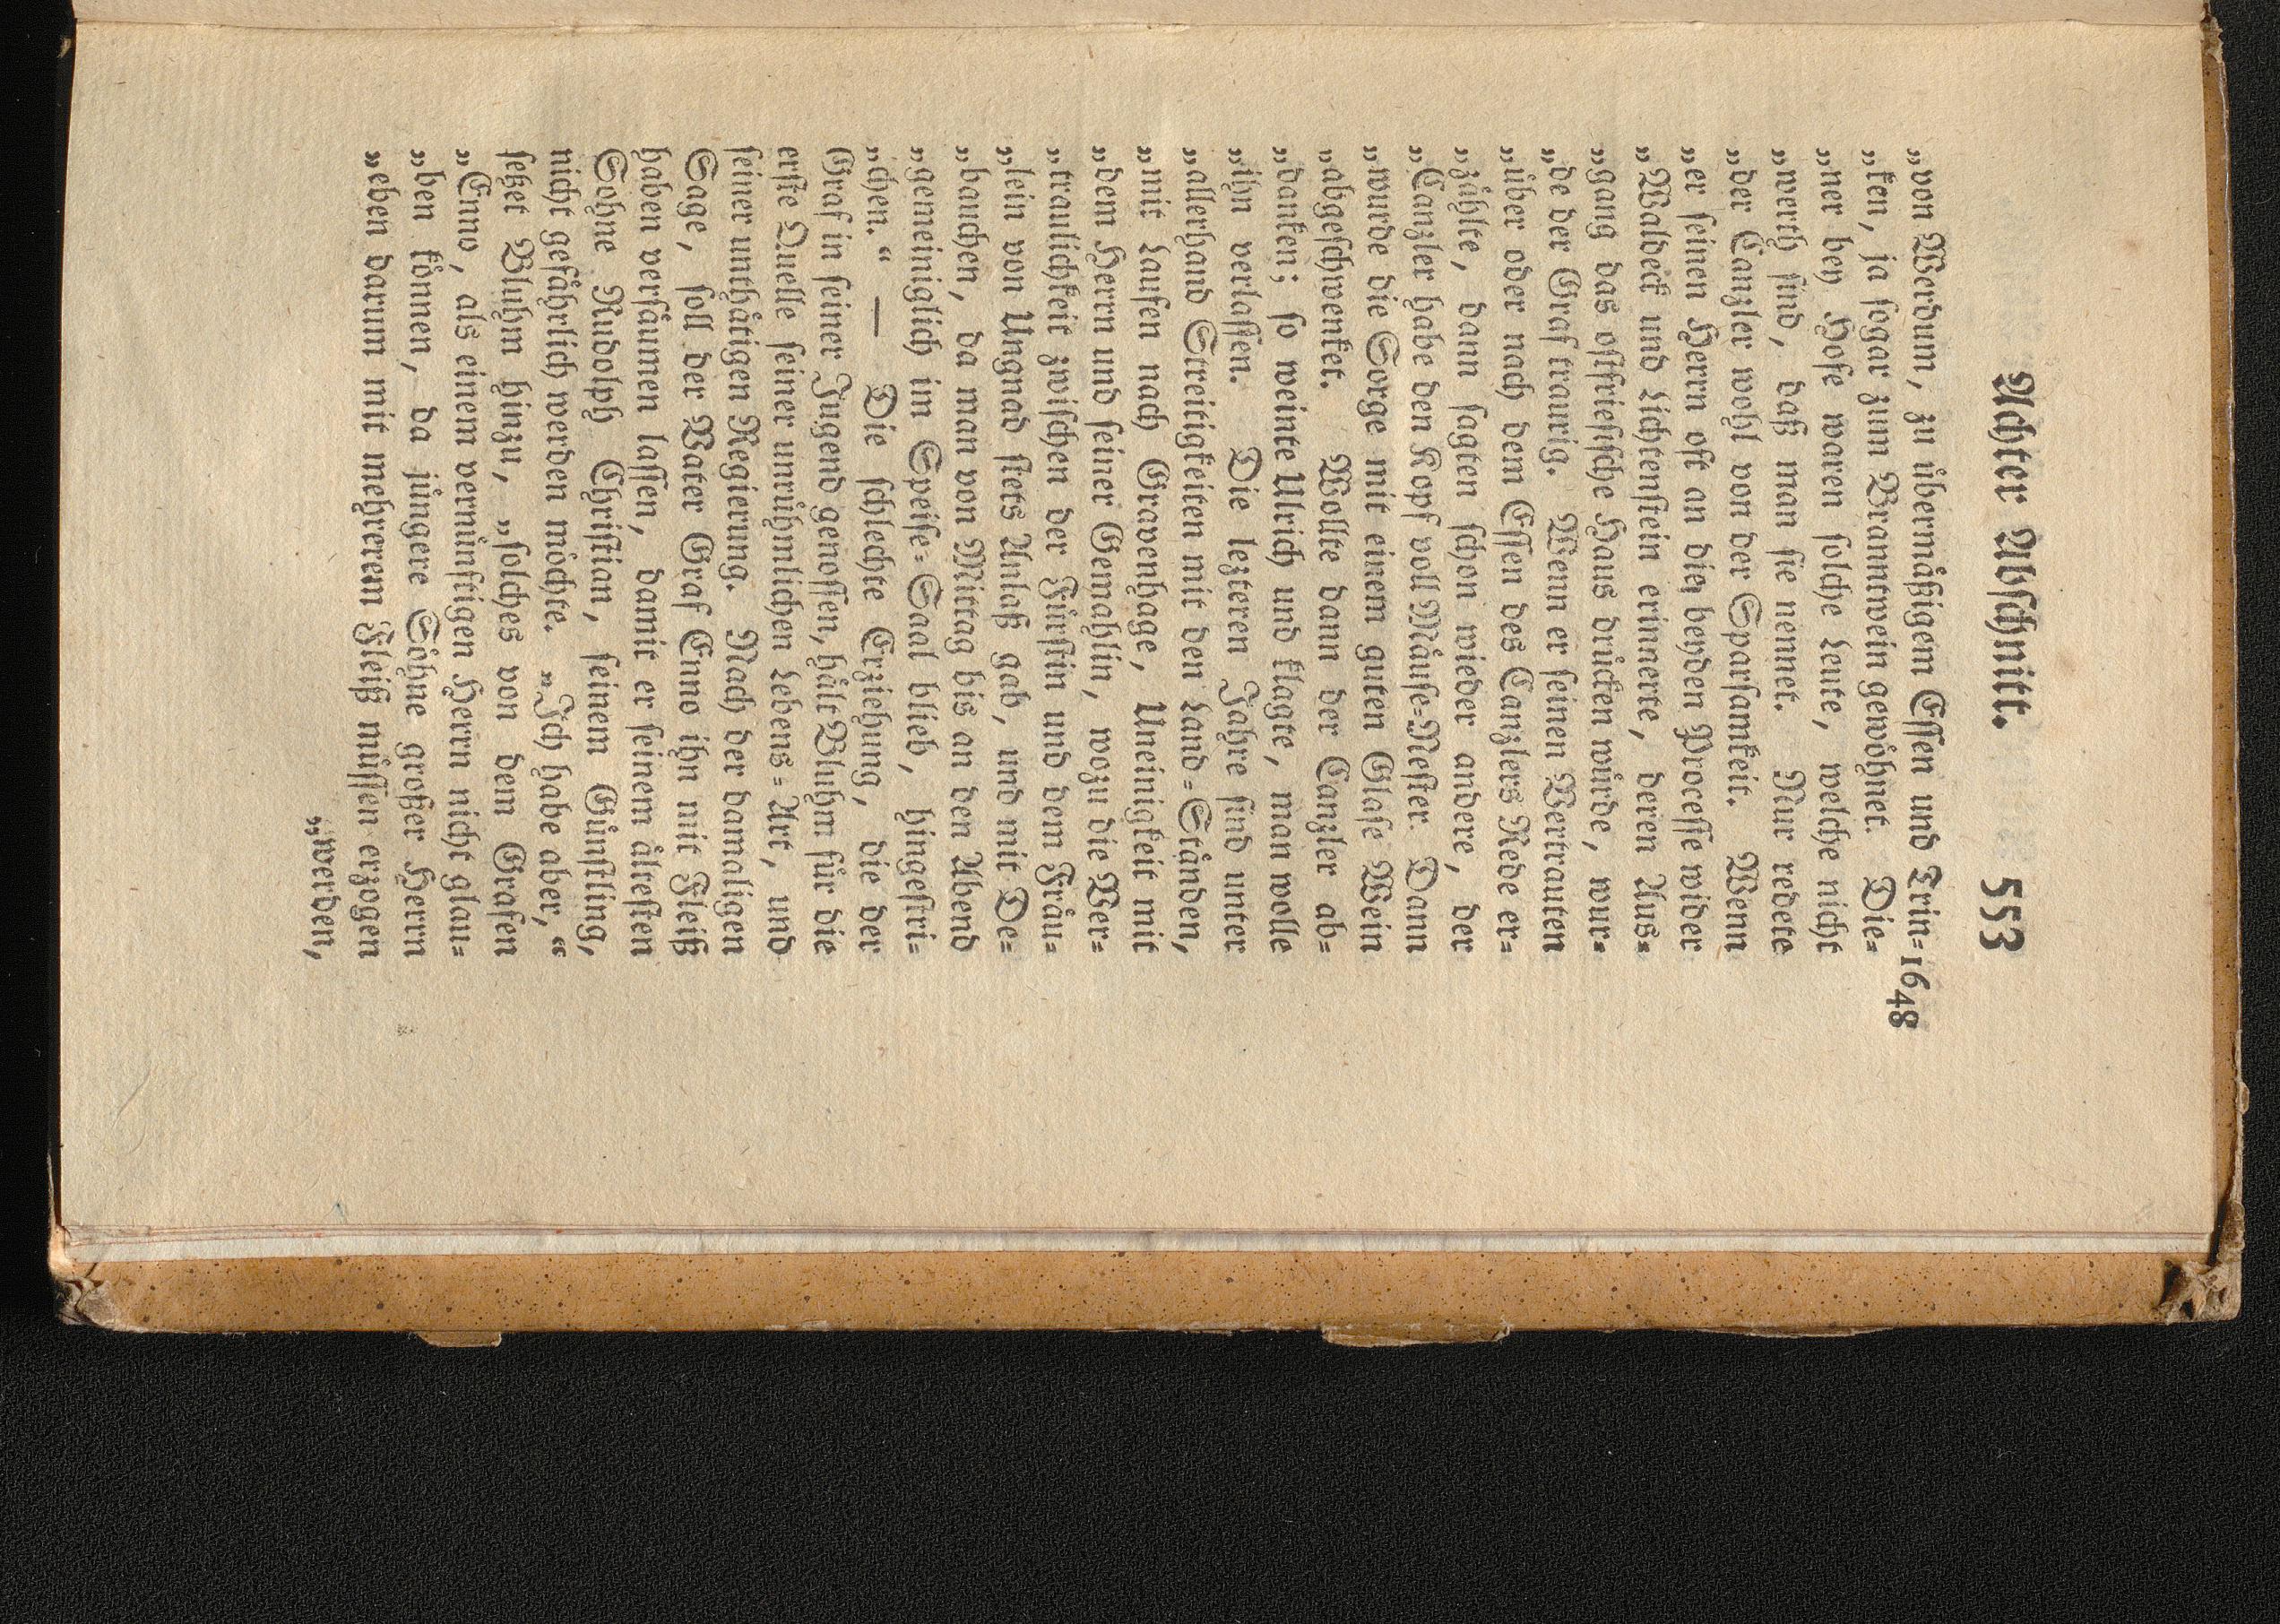 Achter Abschnitt. 553
„von Werdum, zu uͤbermaͤßigem Eſſen und Trin⸗ 1648
„ken, ja ſogar zum Brantwein gewoͤhnet. Die⸗
„ner bey Hofe waren ſolche Leute, welche nicht
„werth ſind, daß man ſie nennet. Nur redete
„der Canzler wohl von der Sparſamkeit. Wenn
„er ſeinen Herrn oft an die beyden Proceſſe wider
„Waldeck und Lichtenſtein erinnerte, deren Aus⸗
„gang das oſtfrieſiſche Haus druͤcken wuͤrde, wur⸗
„de der Graf traurig. Wenn er ſeinen Vertrauten
„uͤber oder nach dem Eſſen des Canzlers Rede er⸗
„zaͤhlte, dann ſagten ſchon wieder andere, der
„Canzler habe den Kopf voll Maͤuſe⸗Neſter. Dann
„wurde die Sorge mit einem guten Glaſe Wein
„abgeſchwenket. Wollte dann der Canzler ab⸗
„danken; ſo weinte Ulrich und klagte, man wolle
„ihn verlaſſen. Die lezteren Jahre ſind unter
„allerhand Streitigkeiten mit den Land⸗Staͤnden,
„mit Laufen nach Gravenhage, Uneinigkeit mit
„dem Herrn und ſeiner Gemahlin, wozu die Ver⸗
„traulichkeit zwiſchen der Fuͤrſtin und dem Fraͤu⸗
„lein von Ungnad ſtets Anlaß gab, und mit De⸗
„bauchen, da man von Mittag bis an den Abend
„gemeiniglich im Speiſe⸗Saal blieb, hingeſtri⸗
„chen.“ — Die ſchlechte Erziehung, die der
Graf in ſeiner Jugend genoſſen, haͤlt Bluhm fuͤr die
erſte Quelle ſeiner unruͤhmlichen Lebens⸗Art, und
ſeiner unthaͤtigen Regierung. Nach der damaligen
Sage, ſoll der Vater Graf Enno ihn mit Fleiß
haben verſaͤumen laſſen, damit er ſeinem aͤlteſten
Sohne Rudolph Chriſtian, ſeinem Guͤnſtling,
nicht gefaͤhrlich werden moͤchte. „Ich habe aber,“
ſetzet Bluhm hinzu, „ſolches von dem Grafen
„Enno, als einem vernuͤnftigen Herrn nicht glau⸗
„ben koͤnnen, da juͤngere Soͤhne großer Herrn
„eben darum mit mehrerem Fleiß muͤſſen erzogen
„werden,